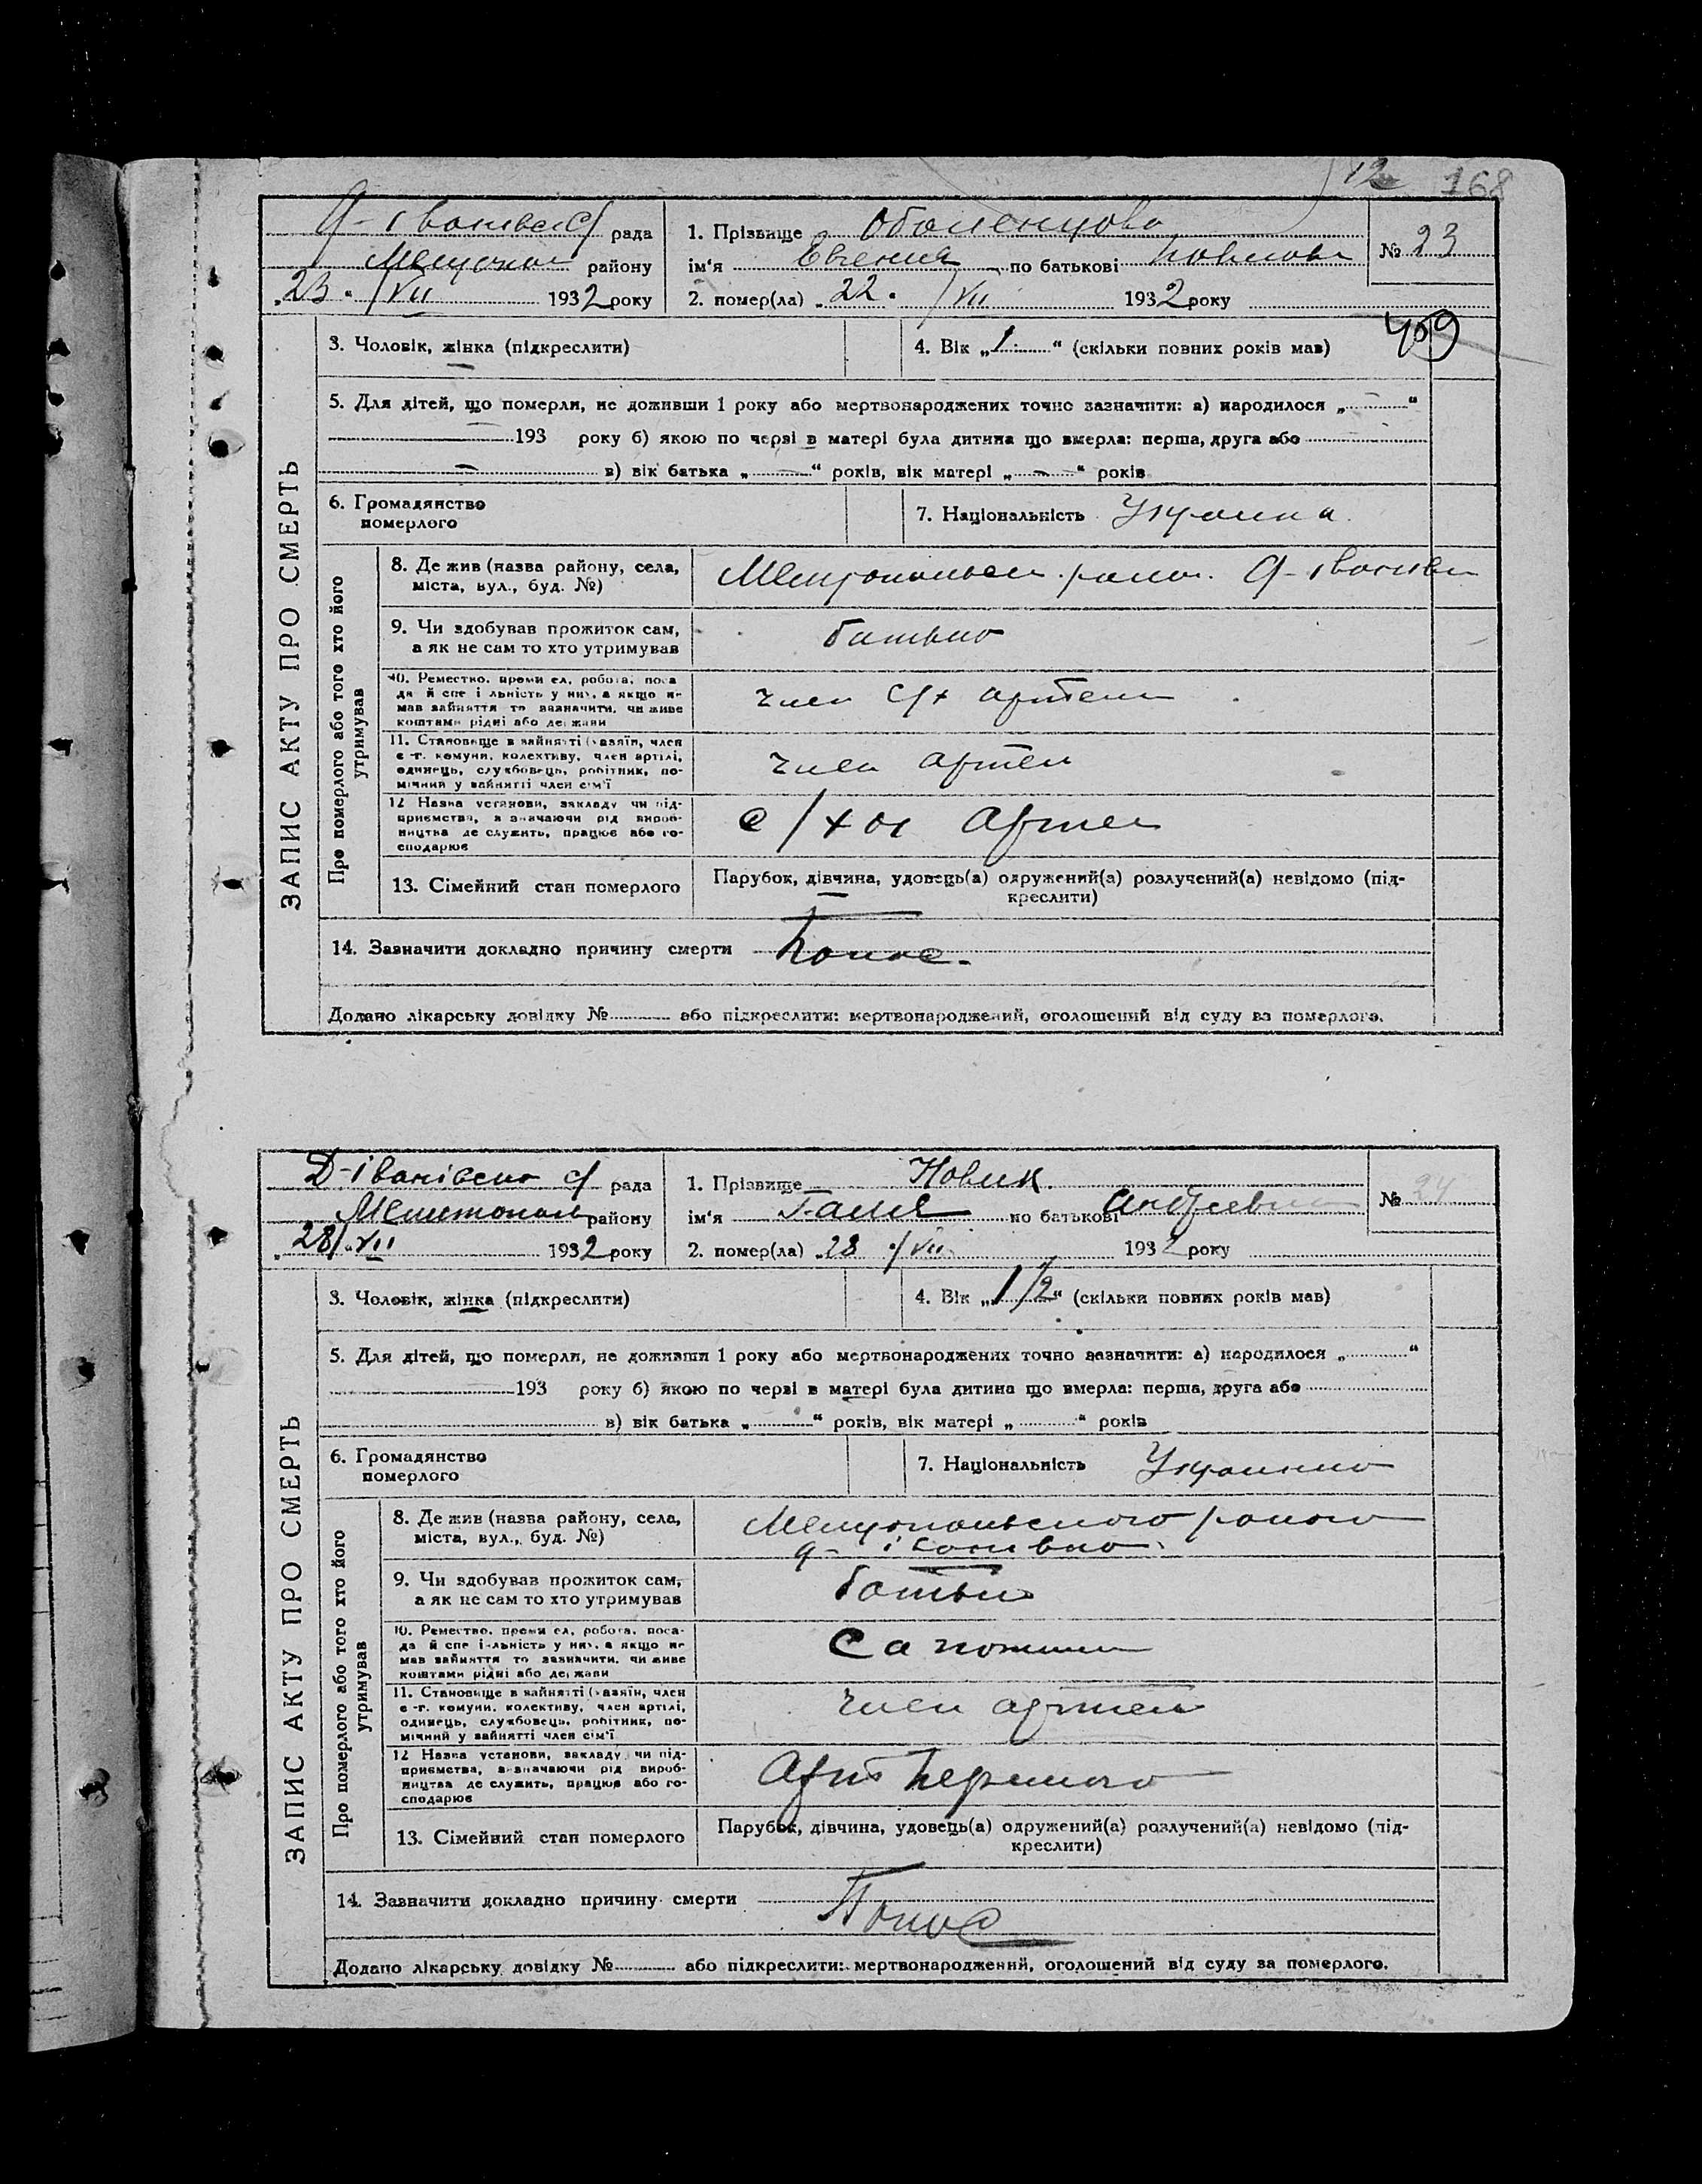 12 168
Д-Іванівськ с/ рада 1. Прізвище Оболенцова № 23
Мелітопол району ім'я Евгения по батькові Павловн
„23“ /VII 1932 року 2. помер(ла) „22“ /VII 1932 року
409
3. Чоловік, жінка (підкреслити) 4. Вік „1“ (скільки повних років мав)
5. Для дітей, що померли, не доживши 1 року або мертвонароджених точно зазначити: а) народилося „ – “
193 року б) якою по черзі в матері була дитина що вмерла: перша, друга або
– в) вік батька „ – “ років, вік матері „ – “ років
6. Громадянство
померлого
7. Національність Украинка
ЗАПИС АКТУ ПРО СМЕРТЬ
Про померлого або того хто його утримував
8. Де жив (назва району, села,
міста, вул., буд. №)
Мелітопольськ. район. Д-Іванівка
9. Чи здобував прожиток сам,
а як не сам то хто утримував
батько
10. Ремество, промисел, робота, поса-
да й спеціяльність у них, а якщо не
мав зайняття то зазначити, чи живе
коштами рідні або держави
член с/х артели
11. Становище в зайнятті (хазяїн, член
с.-г. комуни, колективу, член артілі,
одинець, службовець, робітник, по-
мічний у зайнятті член сім'ї
член артел
12 Назва установи, закладу чи під-
приємства, зазначаючи рід вироб-
ництва де служить, працює або го-
сподарює
с/хоз Артел
13. Сімейний стан померлого
Парубок, дівчина, удовець(а) одружений(а) розлучений(а) невідомо (під-
креслити)
14. Зазначити докладно причину смерти Понос.
Додано лікарську довідку № або підкреслити: мертвонароджений, оголошений від суду за померлого.
Д-Іванівська с/ рада 1. Прізвище Новик № 24
Мелитопол району ім'я Галя по батькові Андреевна
28/VII 1932 року 2. помер(ла) „28 /VII 1932 року
3. Чоловік, жінка (підкреслити) 4. Вік „1/2“ (скільки повних років мав)
5. Для дітей, що померли, не доживши 1 року або мертвонароджених точно зазначити: а) народилося „ “
193 року б) якою по черзі в матері була дитина що вмерла: перша, друга або
в) вік батька „ “ років, вік матері „ “ років
6. Громадянство
померлого
7. Національність Украинка
ЗАПИС АКТУ ПРО СМЕРТЬ
Про померлого або того хто його утримував
8. Де жив (назва району, села,
міста, вул., буд. №)
Мелітопольського району
Д-Іванівка
9. Чи здобував прожиток сам,
а як не сам то хто утримував
батько
10. Ремество, промисел, робота, поса-
да й спеціяльність у них, а якщо не
мав зайняття то зазначити, чи живе
коштами рідні або держави
Сапожник
11. Становище в зайнятті (хазяїн, член
с.-г. комуни, колективу, член артілі,
одинець, службовець, робітник, по-
мічний у зайнятті член сім'ї
член артел
12 Назва установи, закладу чи під-
приємства, зазначаючи рід вироб-
ництва де служить, працює або го-
сподарює
Арт
13. Сімейний стан померлого
Парубок, дівчина, удовець(а) одружений(а) розлучений(а) невідомо (під-
креслити)
14. Зазначити докладно причину смерти Понос
Додано лікарську довідку № або підкреслити: мертвонароджений, оголошений від суду за померлого.